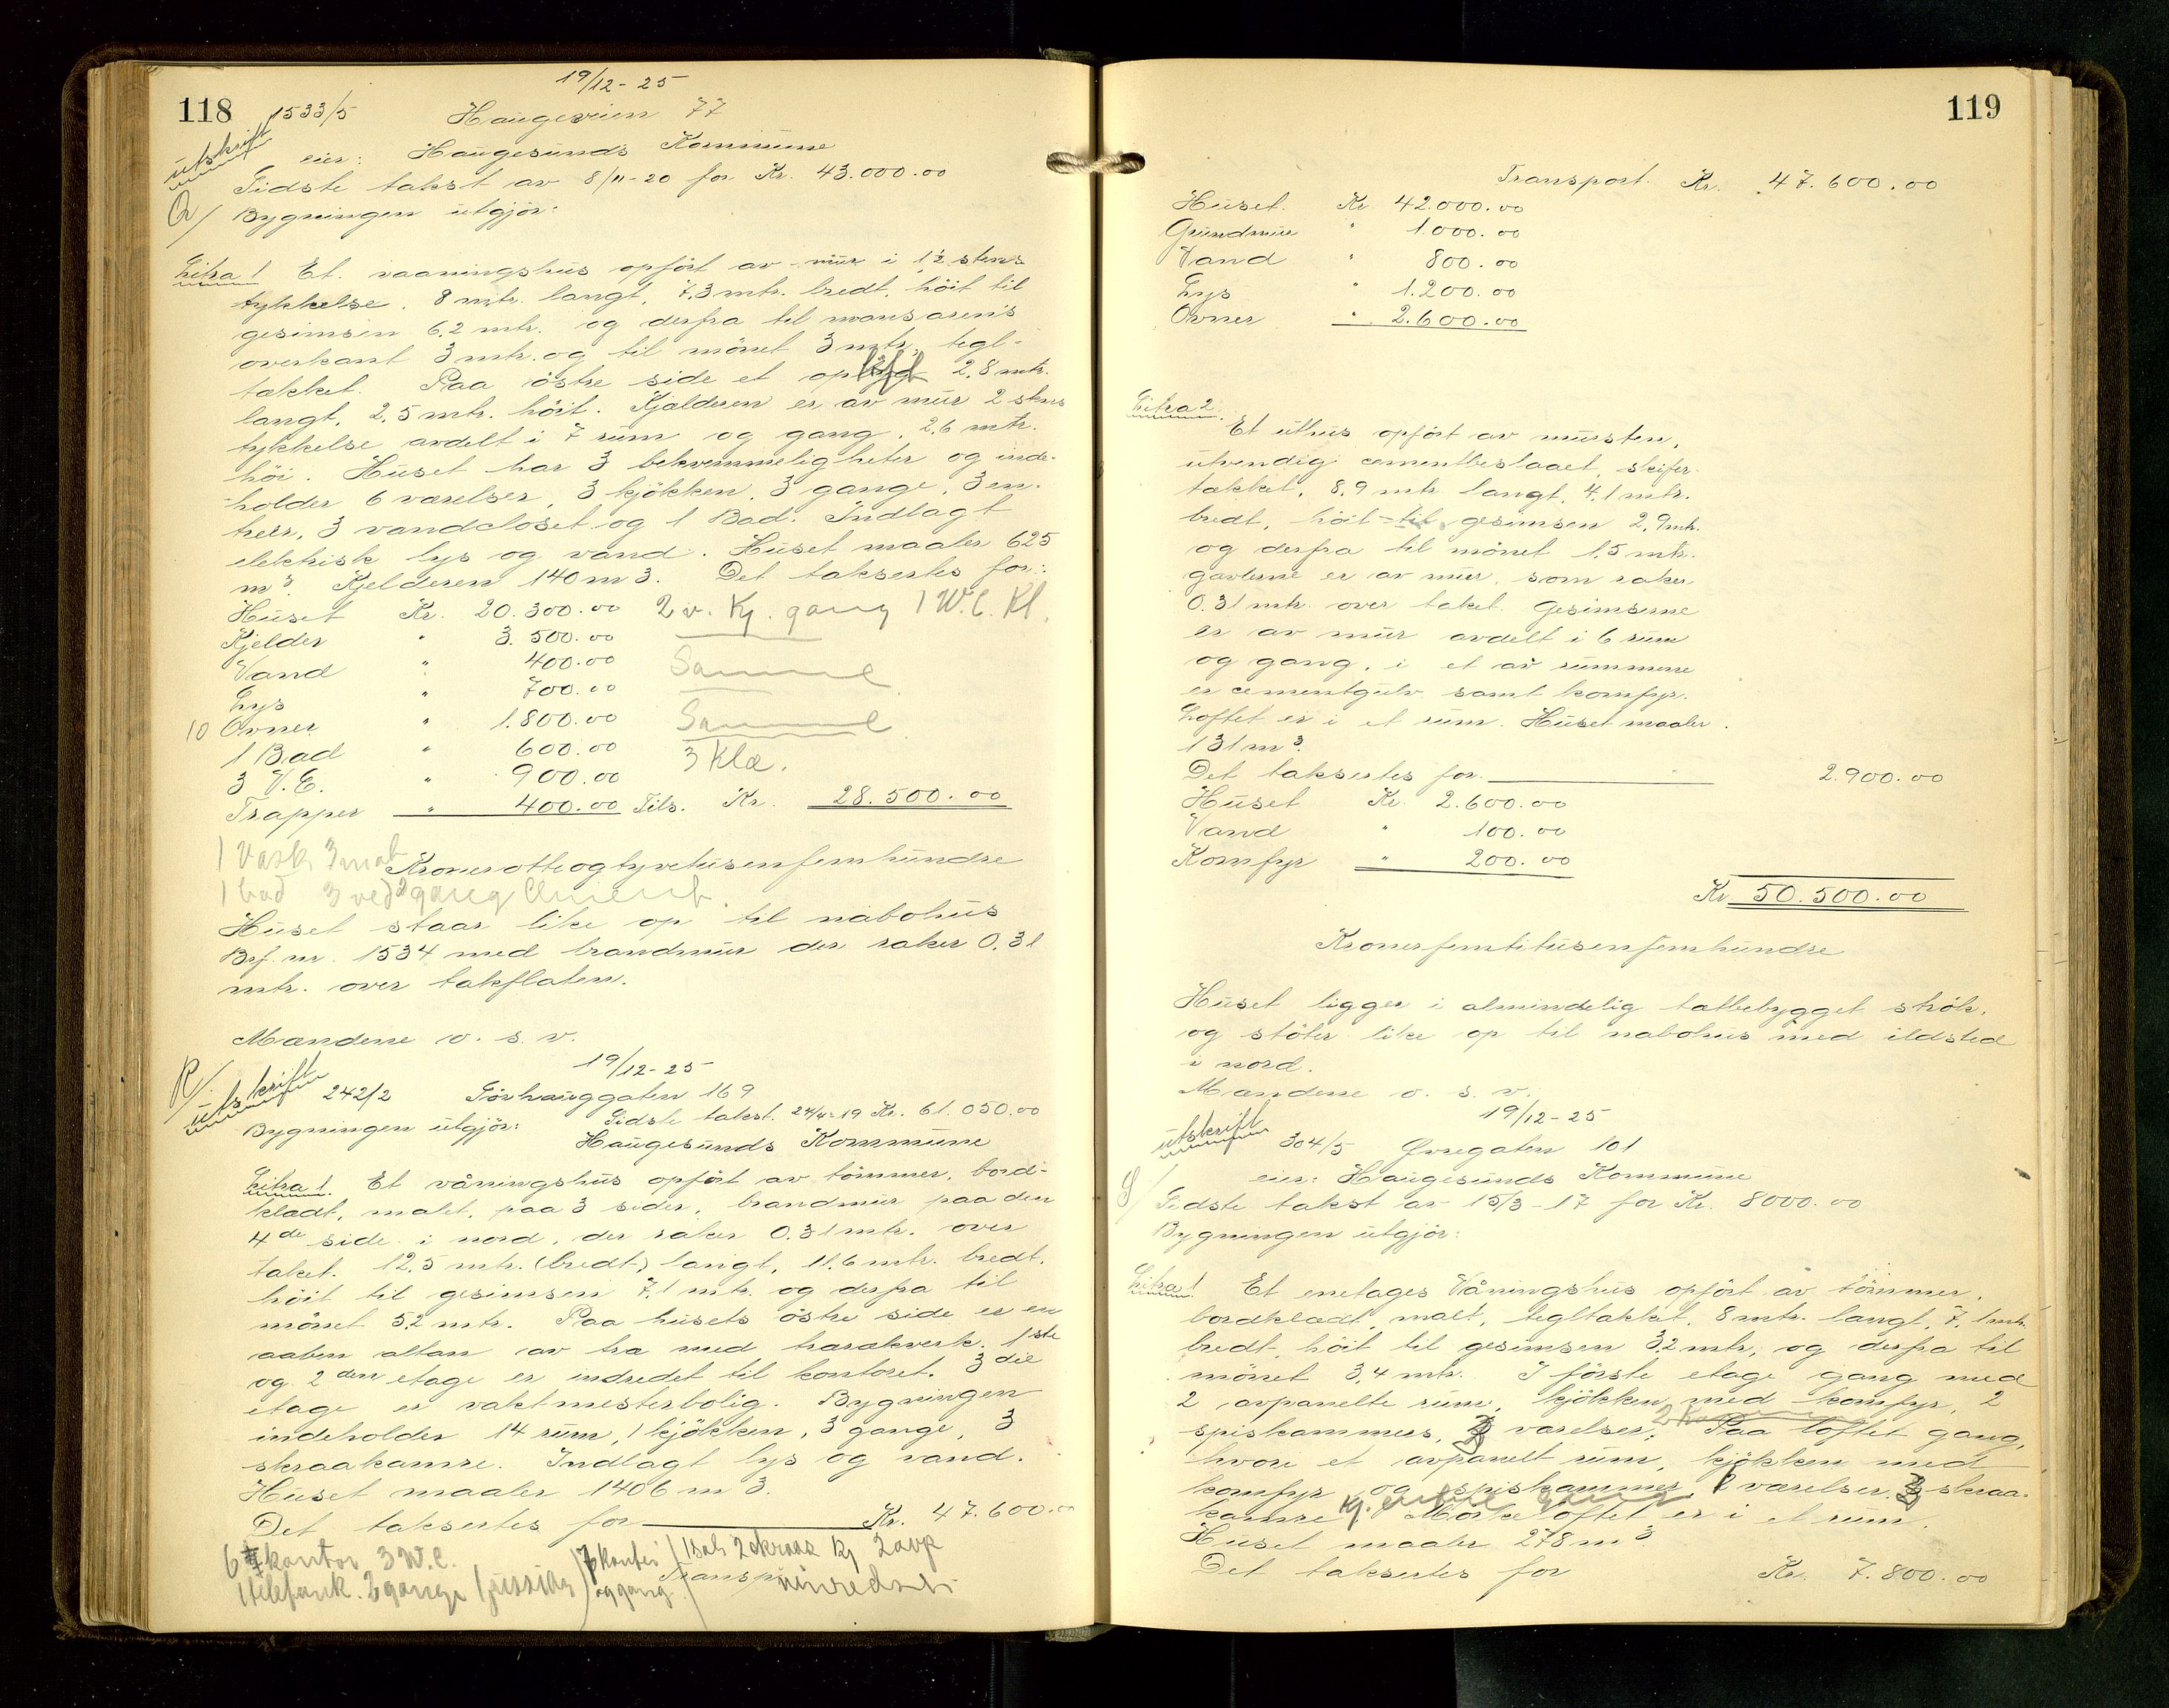 118
19/12-25
1533/5 Haugeveien 77
utskrift
eier: Haugesunds Kommune
Sidste takst av 8/11-20 for Kr. 43.000.00
Q/ Bygningen utgjör:
Litra 1 Et vaaningshus opfört av mur i 1½ stens
tykkelse. 8 mtr. langt, 7,3 mtr. bredt, höit til
gesimsen 6,2 mtr. og derfra til mansarens
overkant 3 mtr. og til mönet 3 mtr, tegl-
takket. Paa östre side et opløft 2,8 mtr.
langt, 2,5 mtr. höit. Kjælderen er av mur 2 stens
tykkelse avdelt i 7 rum og gang, 2,6 mtr.
höi. Huset har 3 bekvemmeligheter og inde-
holder 6 værelser, 3 kjökken, 3 gange, 3 en-
treer, 3 vandcloset og 1 Bad. Indlagt
elektrisk lys og vand. Huset maaler 625
m³. Kjelderen 140 m3. Det taksertes for:
Huset Kr. 20.300.00 2 v. Kj. gang 1 W.C. Kl.
Kjelder " 3.500.00
Vand " 400.00 Samme
Lys " 700.00
10 Ovner " 1.800.00 Samme
1 Bad " 600.00 3 Kla.
3 V.C. " 900.00
Trapper " 400.00 Tils. Kr. 28.500.00
1 Vask 3 mat
Kronerotteogtyvetusenfemhundre
1 bad 3 ved 2 gang
Huset staar like op til nabohus
Brf. nr. 1534 med brandmur der raker 0,31
mtr. over takflaten.
Mændene o. s. v.
19/12-25
R/ utskrift
242/2 Sörhauggaten 169
Sidste takst 24/11-19 Kr. 61.050.00
Bygningen utgjör:
Haugesunds Kommune
Litra 1. Et våningshus opfört av tömmer, bord-
klædt, malet, paa 3 sider, brandmur paa den
4de side i nord, der raker 0.31 mtr. over
taket. 12,5 mtr. (bredt) langt, 11,6 mtr. bredt,
höit til gesimsen 7,1 mtr. og derfra til
mönet 5,2 mtr. Paa husets östre side er en
aaben altan av træ med trærækverk. 1ste
og 2den etage er indredet til kontorer. 3die
etage er vaktmesterbolig. Bygningen
indeholder 14 rum, 1 kjökken, 3 gange, 3
skraakamre. Indlagt lys og vand.
Huset maaler 1406 m3.
Det taksertes for Kr. 47.600.00
6 kontor 3 W.C. 7 kontor 1 bad 2 skraak Kj 2 avp
1 telefonk. 2 gange og gang
Transp
119
Transport. Kr. 47.600.00
Huset. Kr 42.000.00
Grundmur " 1.000.00
Vand " 800.00
Lys " 1.200.00
Ovner " 2.600.00
Litra 2.
Et uthus opfört av mursten,
utvendig cementbeslaaet, skifer-
takket, 8,9 mtr. langt, 4,1 mtr.
bredt, höit til gesimsen 2,9 mtr.
og derfra til mönet 1,5 mtr.
gavlerne er av mur, som raker
0.31 mtr. over taket. Gesimserne
er av mur avdelt i 6 rum
og gang, i et av rummene
er cementgulv samt komfyr.
Loftet er i et rum. Huset maaler
131 m³.
Det taksertes for. 2.900.00
Huset Kr. 2.600.00
Vand " 100.00
Komfyr " 200.00
Kr. 50.500.00
Kronerfemtitusenfemhundre
Huset ligger i almindelig tætbebygget strök,
og stöter like op til nabohus med ildsted
i nord.
Mændene o. s. v.
19/12-25
utskrift
304/5 Øvregaten 101
eier: Haugesunds Kommune
S/ Sidste takst av 15/3-17 for Kr. 8000.00
Bygningen utgjör:
Litra 1. Et enetages Våningshus opfört av tömmer,
bordklædt, malt, tegltakket, 8 mtr. langt, 7,1 mtr.
bredt, höit til gesimsen 3,2 mtr, og derfra til
mönet 3,4 mtr. I förste etage gang med
2 avpanelte rum, kjökken med komfyr, 2
spiskammers, 3 værelser. Paa loftet gang,
hvori et avpanelt rum, kjökken med
komfyr og spiskammer, 2 værelser, 3 skraa-
kamre. Mörkeloftet er i et rum.
Huset maaler 278 m3
Det taksertes for Kr. 7.800.00